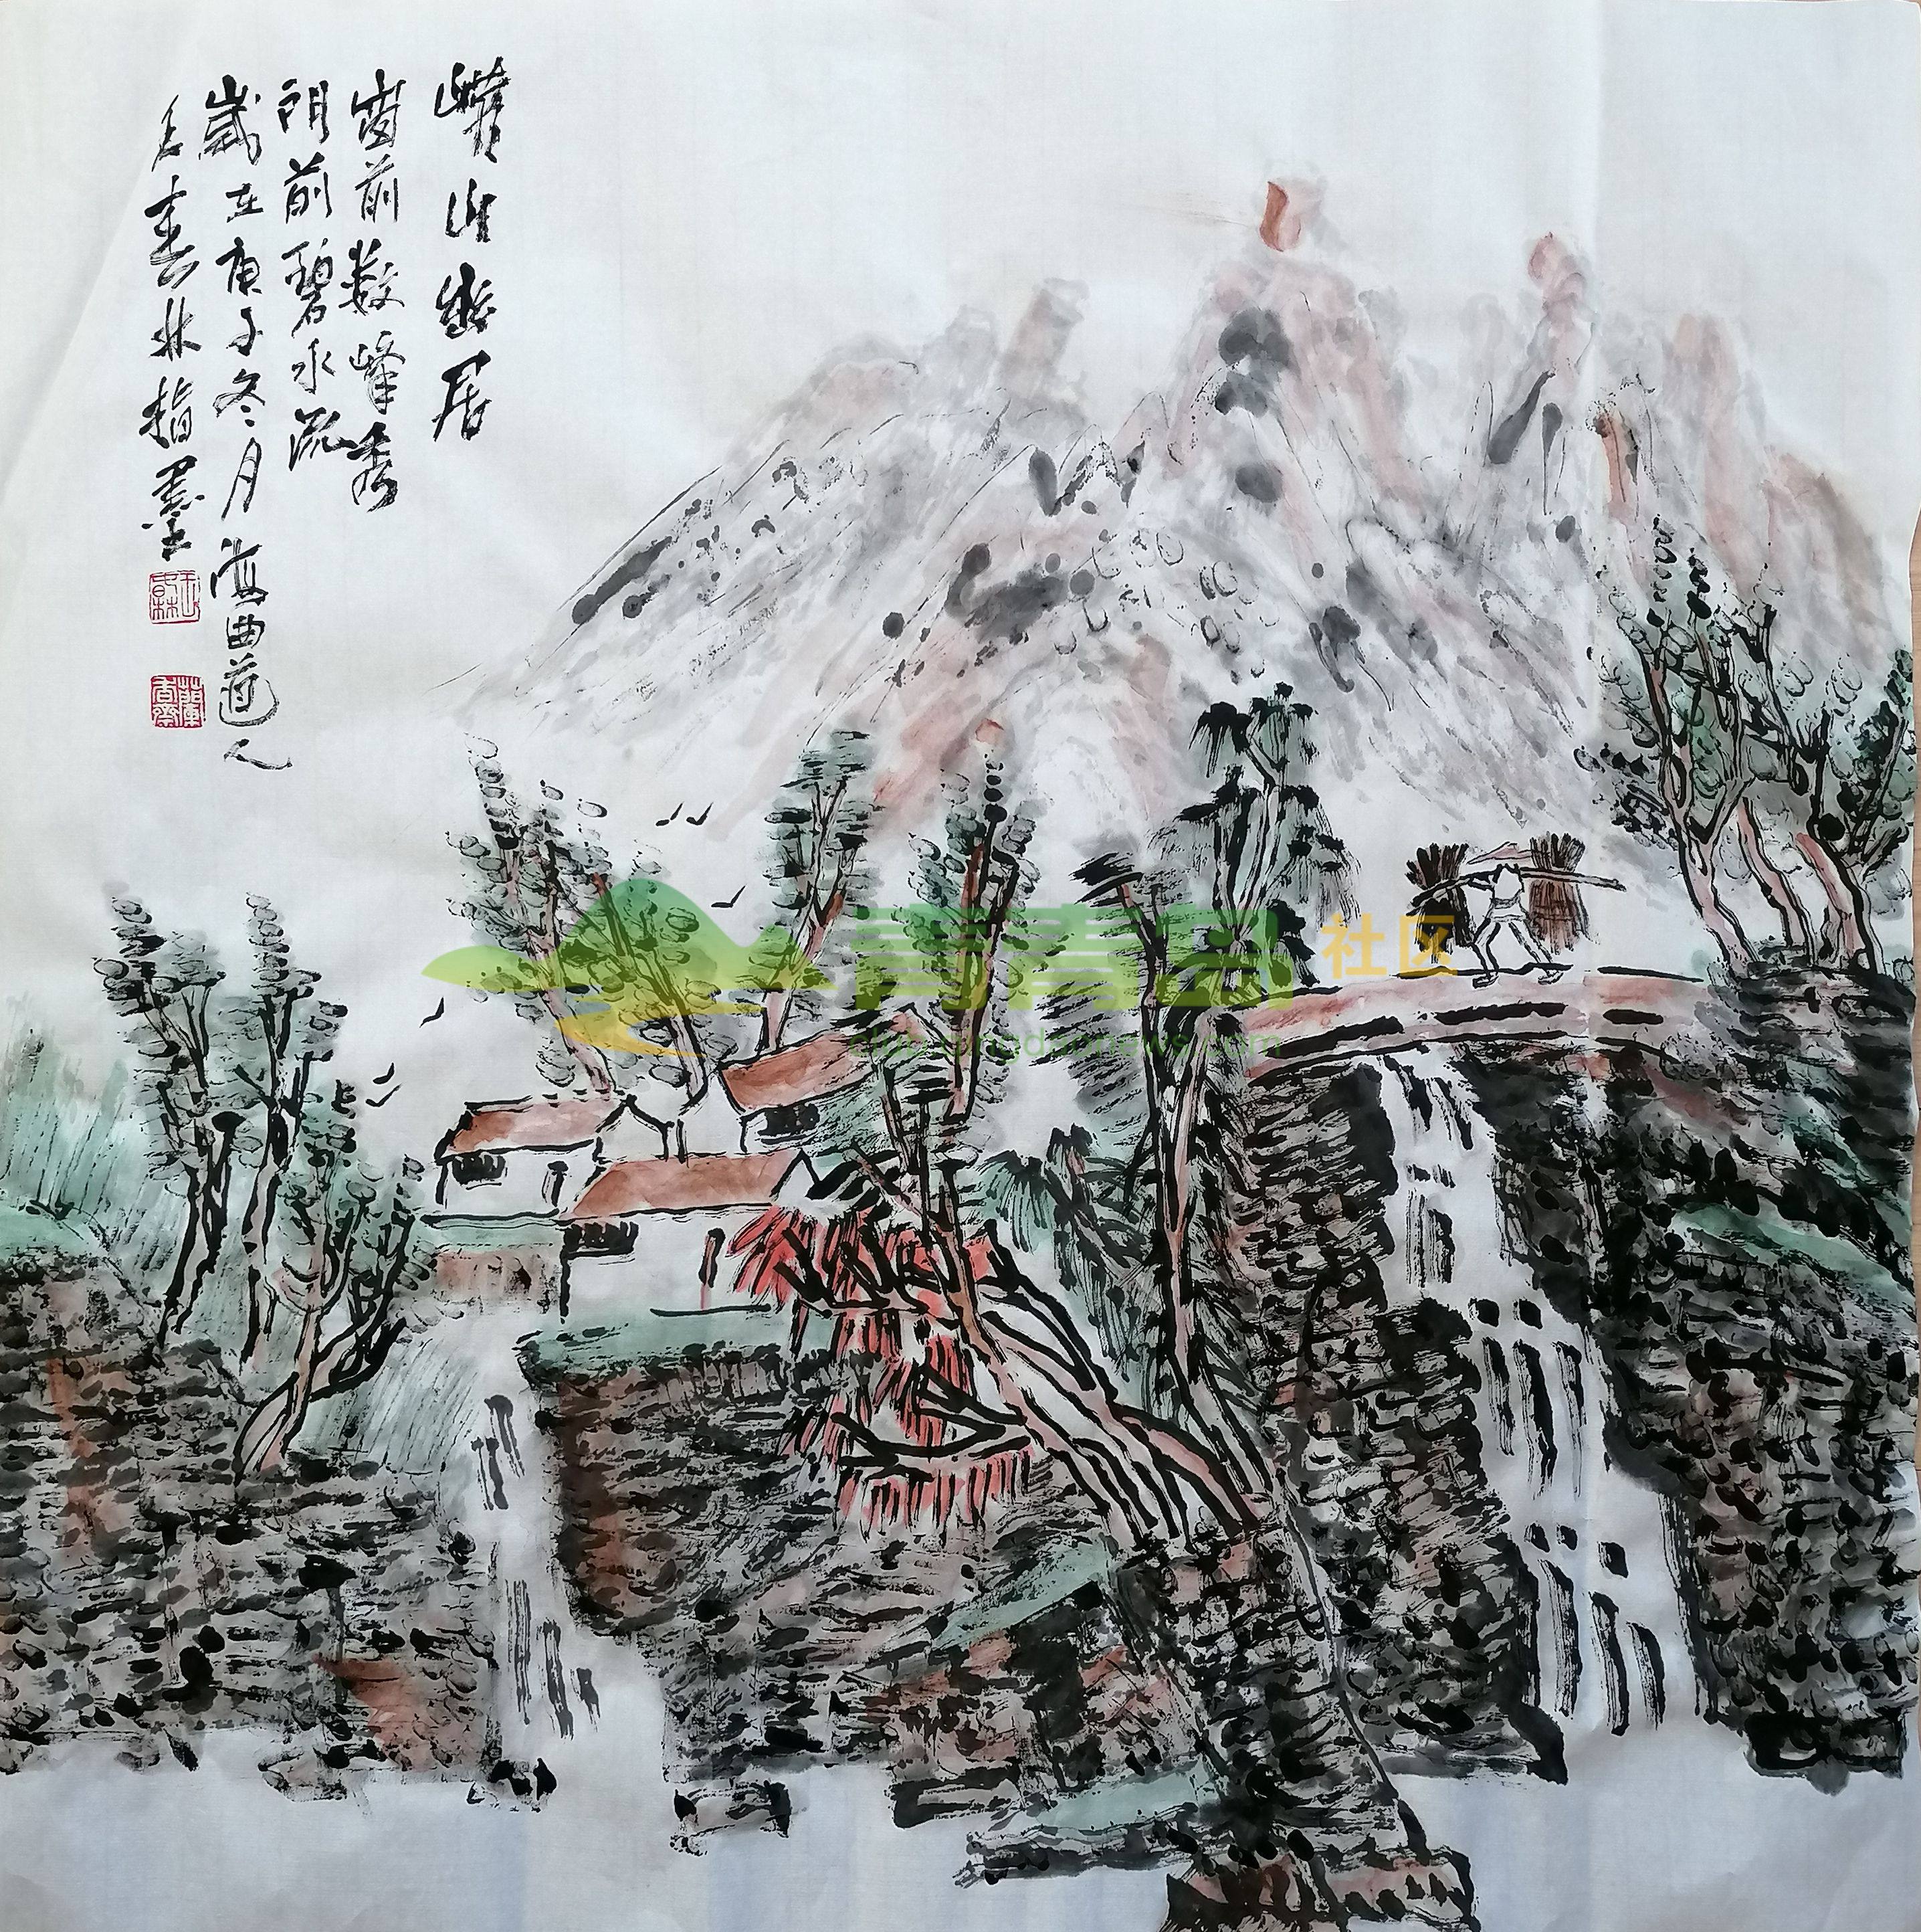 崂山幽居
窗前数峰秀
门前碧水流
岁在庚子冬月海曲道人
王春林指墨
青青岛 社区
club.qingdaonews.com